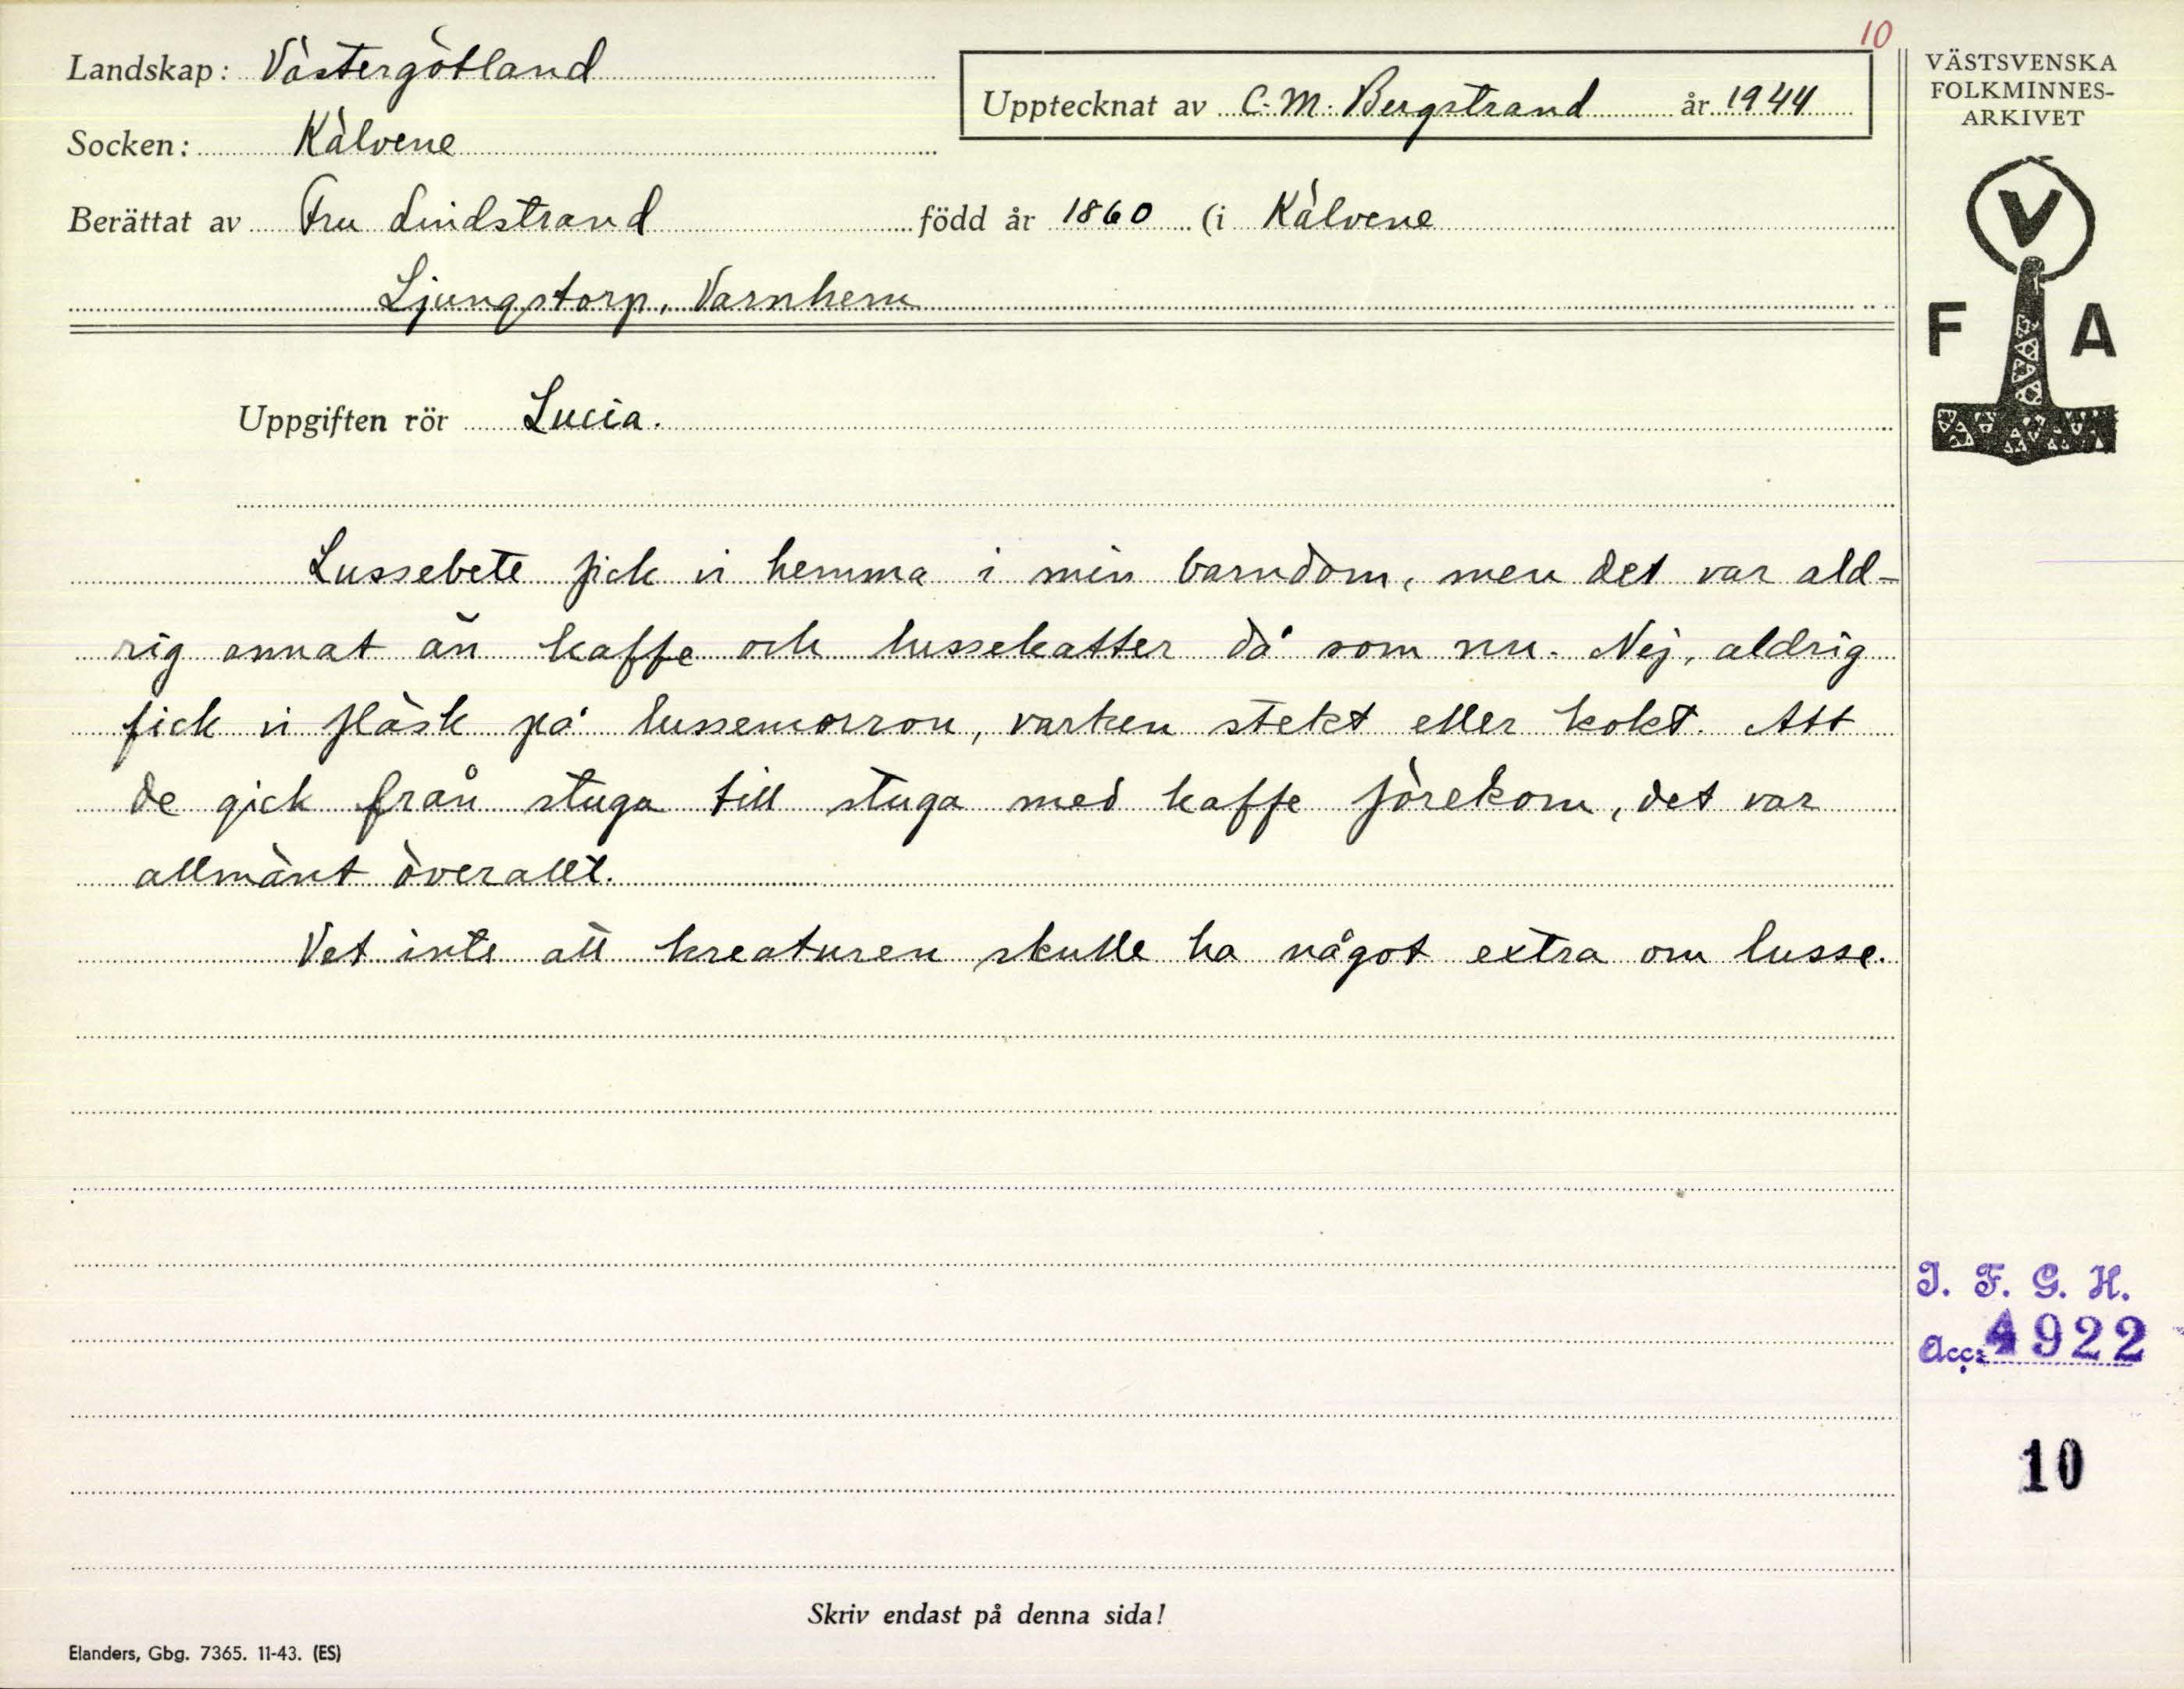 10
Landskap: Västergötland
Upptecknat av C. M. Bergstrand år 1944
VÄSTSVENSKA
FOLKMINNES-
ARKIVET
Socken: Kälvene
Berättat av Fru Lindstrand född år 1860 (i Kälvene
Ljungstorp, Varnhem
V
F A
Uppgiften rör Lucia.
Lussebete fick vi hemma i min barndom, men det var ald-
rig annat än kaffe och lussekatter då som nu. Nej, aldrig
fick vi fläsk på lussemorron, varken stekt eller kokt. Att
de gick från stuga till stuga med kaffe förekom, det var
allmänt överallt.
Vet inte att kreaturen skulle ha något extra om lusse.
I. F. G. H.
Acc: 4922
10
Skriv endast på denna sida!
Elanders, Gbg. 7365. 11-43. (ES)